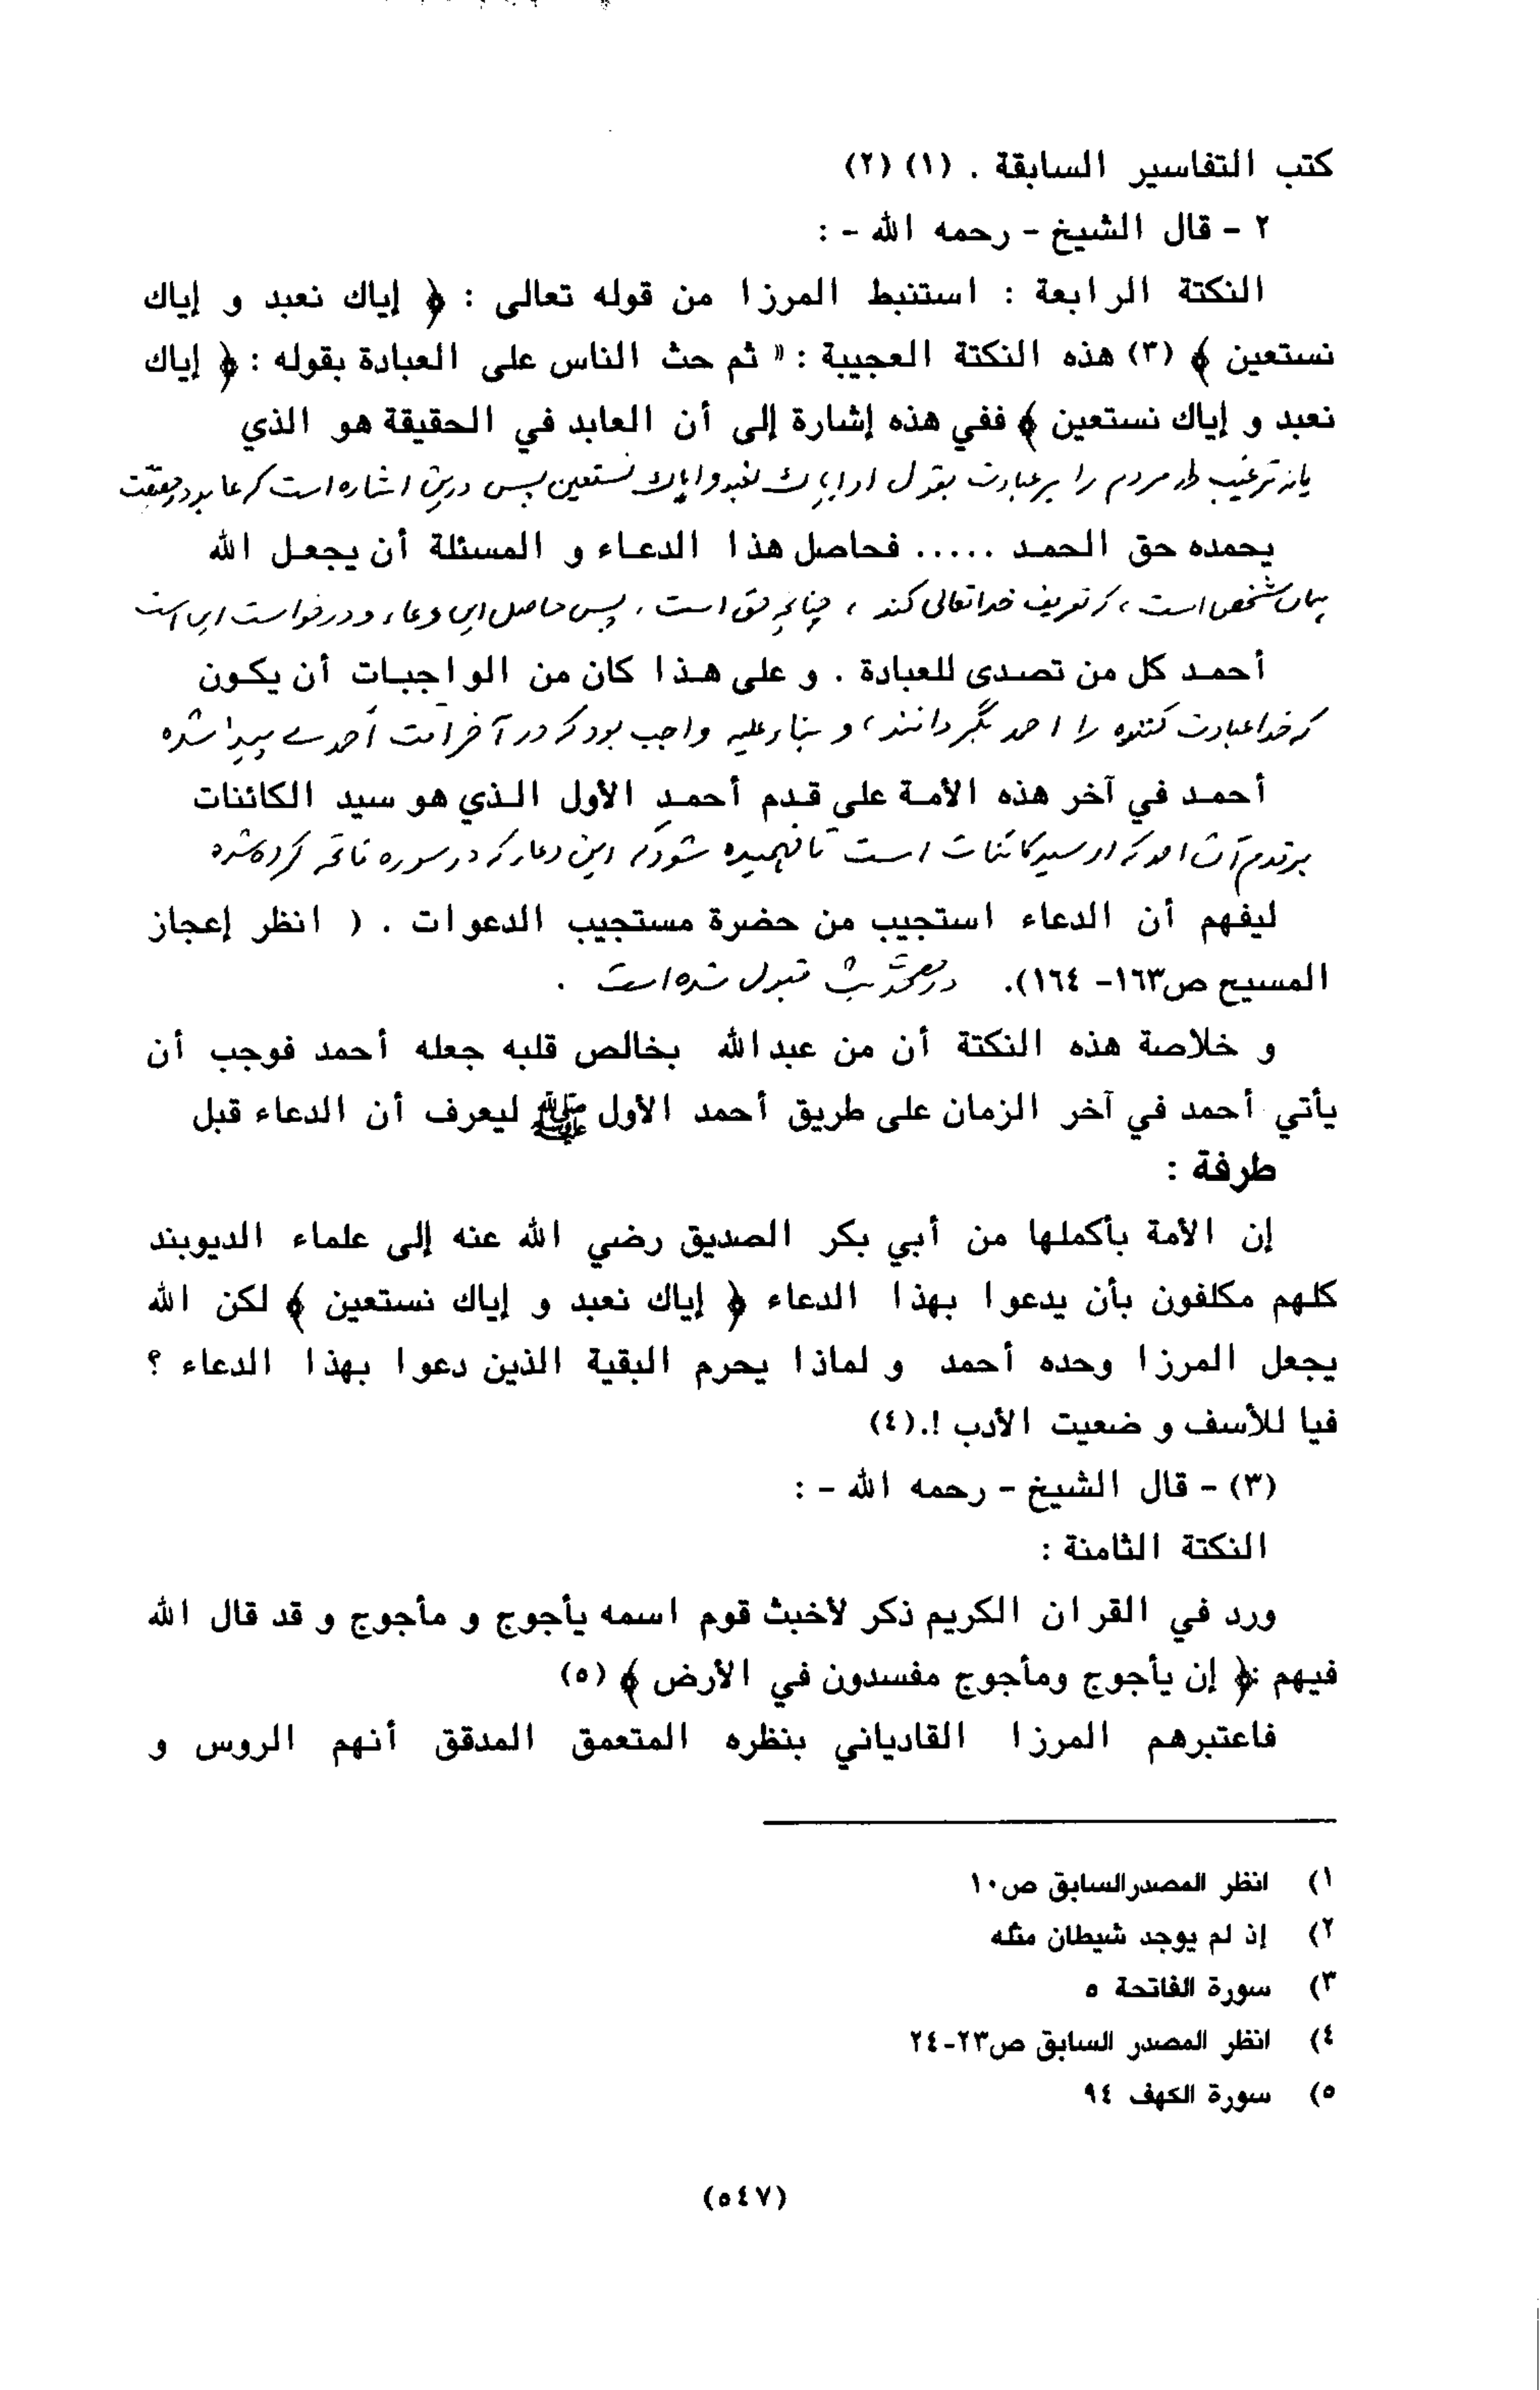 كتب التفاسير السابقة . (١) (٢)
٢ - قال الشيخ - رحمه الله - :
النكتة الرابعة : استنبط المرزا من قوله تعالى : ﴿ إياك نعبد و إياك
نستعين ﴾ (٣) هذه النكتة العجيبة : « ثم حث الناس على العبادة بقوله : ﴿ إياك
نعبد و إياك نستعين ﴾ ففي هذه إشارة إلى أن العابد في الحقيقة هو الذي
ترغيب مردم را بر عبادت بقول او اياك نعبد واياك نستعين پس درين اشاره است كه عابد در حقيقت
يحمده حق الحمد ..... فحاصل هذا الدعاء و المسئلة أن يجعل الله
شخص است ، كه تعريف خدا تعالى كند ، چنانچه حق است ، پس حاصل اين دعاء و درخواست اين است
أحمد كل من تصدى للعبادة . و على هذا كان من الواجبات أن يكون
كه خدا عبادت كننده را احمد بگرداند ، و بناء عليه واجب بود كه در آخر امت احمدے پيدا شده
أحمد في آخر هذه الأمة على قدم أحمد الأول الذي هو سيد الكائنات
بر قدم آن احمد كه او سيد كائنات است تا فهميده شود كه اين دعا كه در سوره فاتحه كرده شده
ليفهم أن الدعاء استجيب من حضرة مستجيب الدعوات . ( انظر إعجاز
المسيح ص١٦٣- ١٦٤). قبول شده است .
و خلاصة هذه النكتة أن من عبدالله بخالص قلبه جعله أحمد فوجب أن
يأتي أحمد في آخر الزمان على طريق أحمد الأول ﷺ ليعرف أن الدعاء قبل
طرفة :
إن الأمة بأكملها من أبي بكر الصديق رضي الله عنه إلى علماء الديوبند
كلهم مكلفون بأن يدعوا بهذا الدعاء ﴿ إياك نعبد و إياك نستعين ﴾ لكن الله
يجعل المرزا وحده أحمد و لماذا يحرم البقية الذين دعوا بهذا الدعاء ؟
فيا للأسف و ضعيت الأدب !.(٤)
(٣) - قال الشيخ - رحمه الله - :
النكتة الثامنة :
ورد في القران الكريم ذكر لأخبث قوم اسمه يأجوج و مأجوج و قد قال الله
فيهم :﴿ إن يأجوج ومأجوج مفسدون في الأرض ﴾ (٥)
فاعتبرهم المرزا القادياني بنظره المتعمق المدقق أنهم الروس و
١) انظر المصدرالسابق ص١٠
٢) إذ لم يوجد شيطان مثله
٣) سورة الفاتحة ٥
٤) انظر المصدر السابق ص٢٣-٢٤
٥) سورة الكهف ٩٤
(٥٤٧)